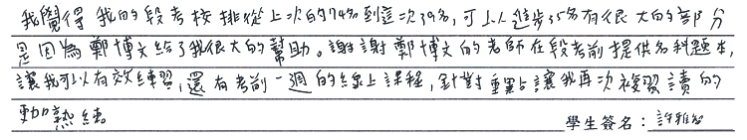 我覺得我的段考校排從上次的74名到這次39名，可以進步35名有很大的部分
是因為鄭博文給了我很大的幫助。謝謝鄭博文的老師在段考前提供各科題本，
讓我可以有效練習，還有考前一週的線上課程，針對重點讓我再次複習讀的
更加熟練
學生簽名：許雅